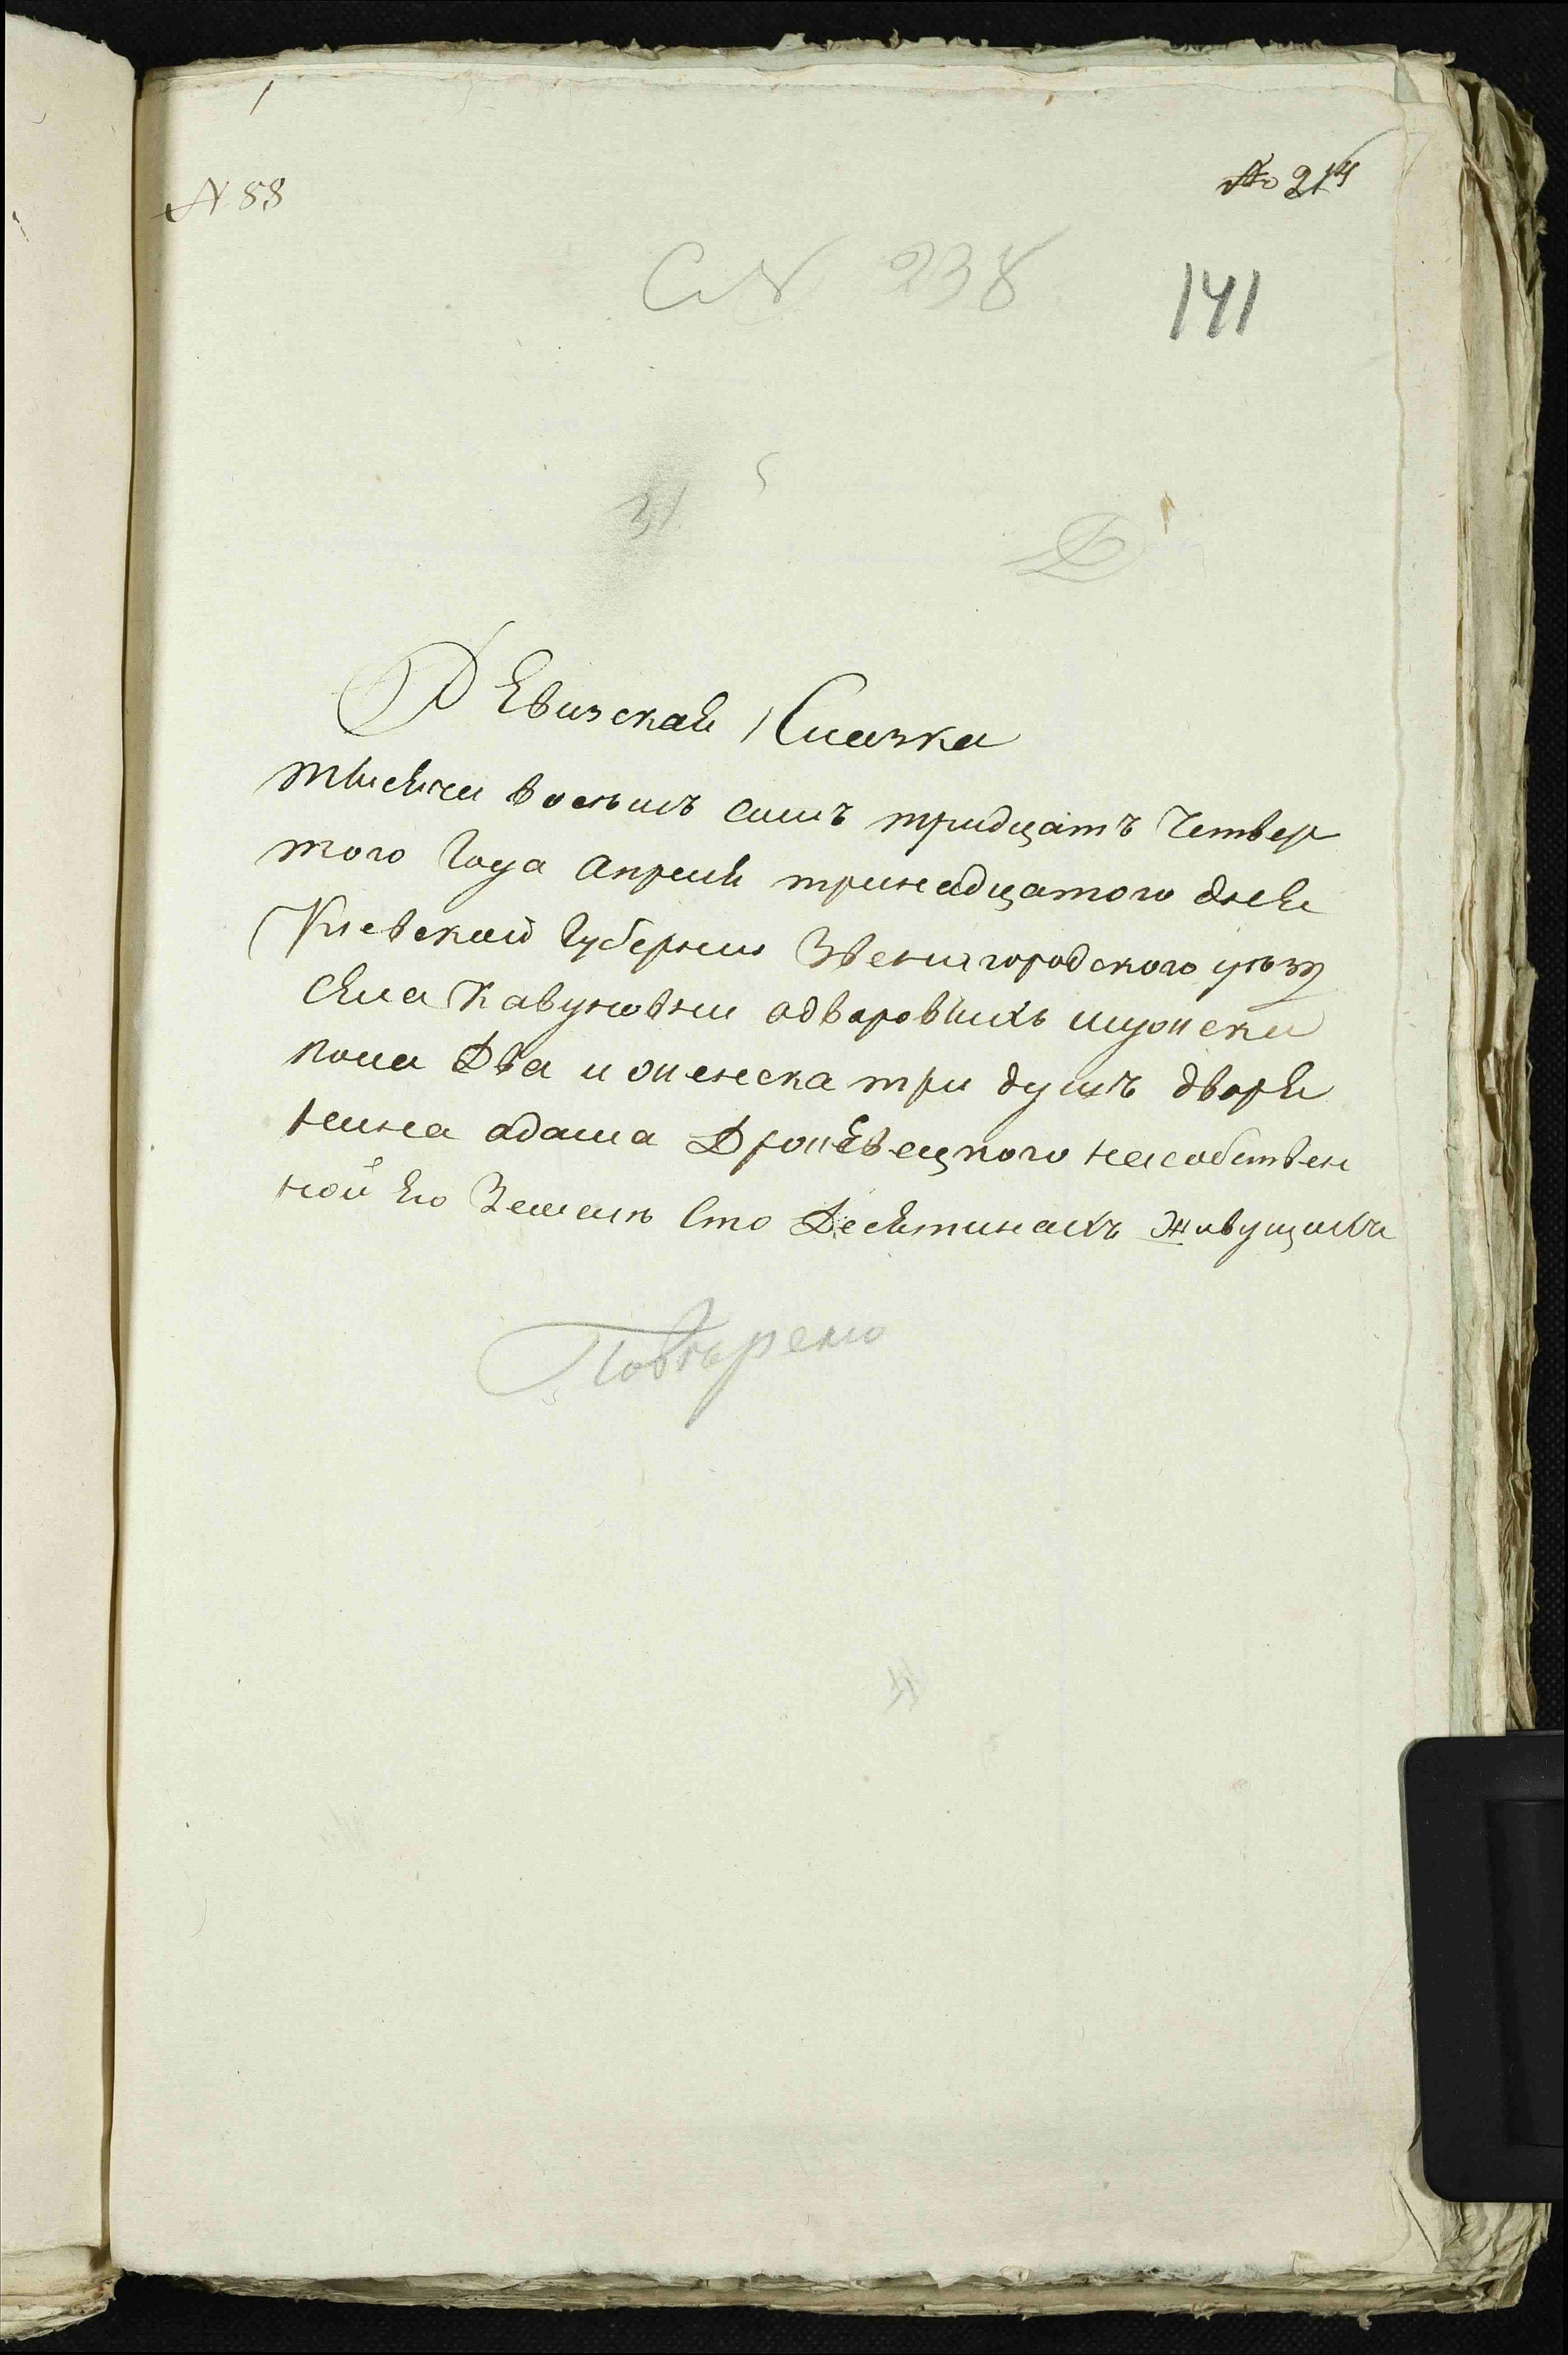 N 88
№ 214
СN 238
141
31
Ревизская Сказка
тысяча восемъ сотъ тридцатъ Четвер
того Года Апреля тринадцатого дня
Киевской Губернии Звенигородского уѣзд
села Кавуновки одворовыхъ мужска
пола Два и женска три душъ дворя
нина адама Дроневецкого насобствен
ной Его Землѣ Сто Десятинахъ живущихъ
Повѣрено